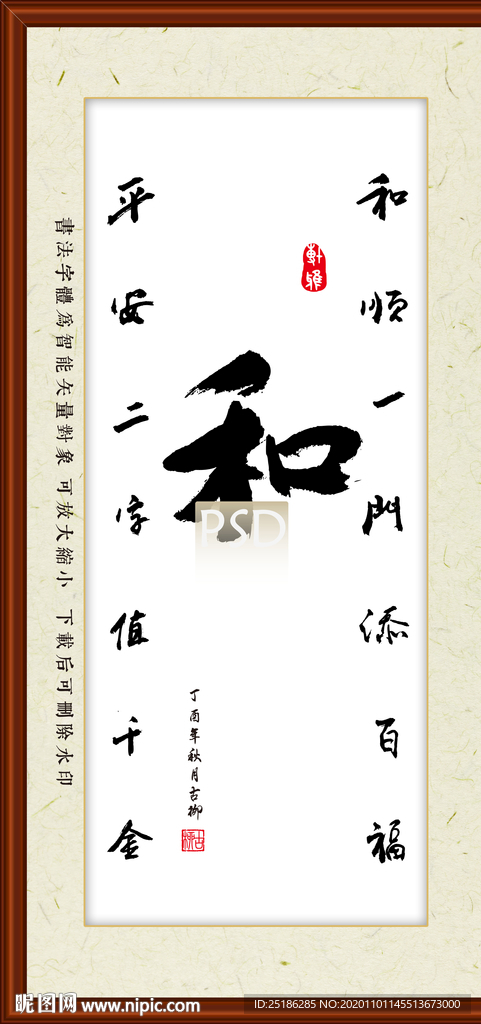 和順一門添百福
軒雅
和
PSD
丁酉年秋月古柳
平安二字值千金
書法字體為智能矢量對象 可放大縮小 下載后可刪除水印
昵图网 www.nipic.com
ID:25186285 NO:20201101145513673000